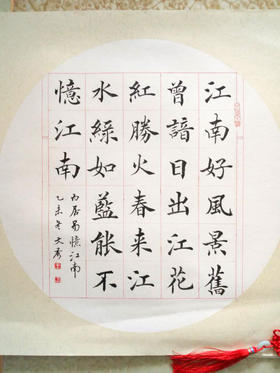 江南好風景舊
曾諳日出江花
紅勝火春来江
水綠如藍能不
憶江南
白居易憶江南
乙未冬文秀